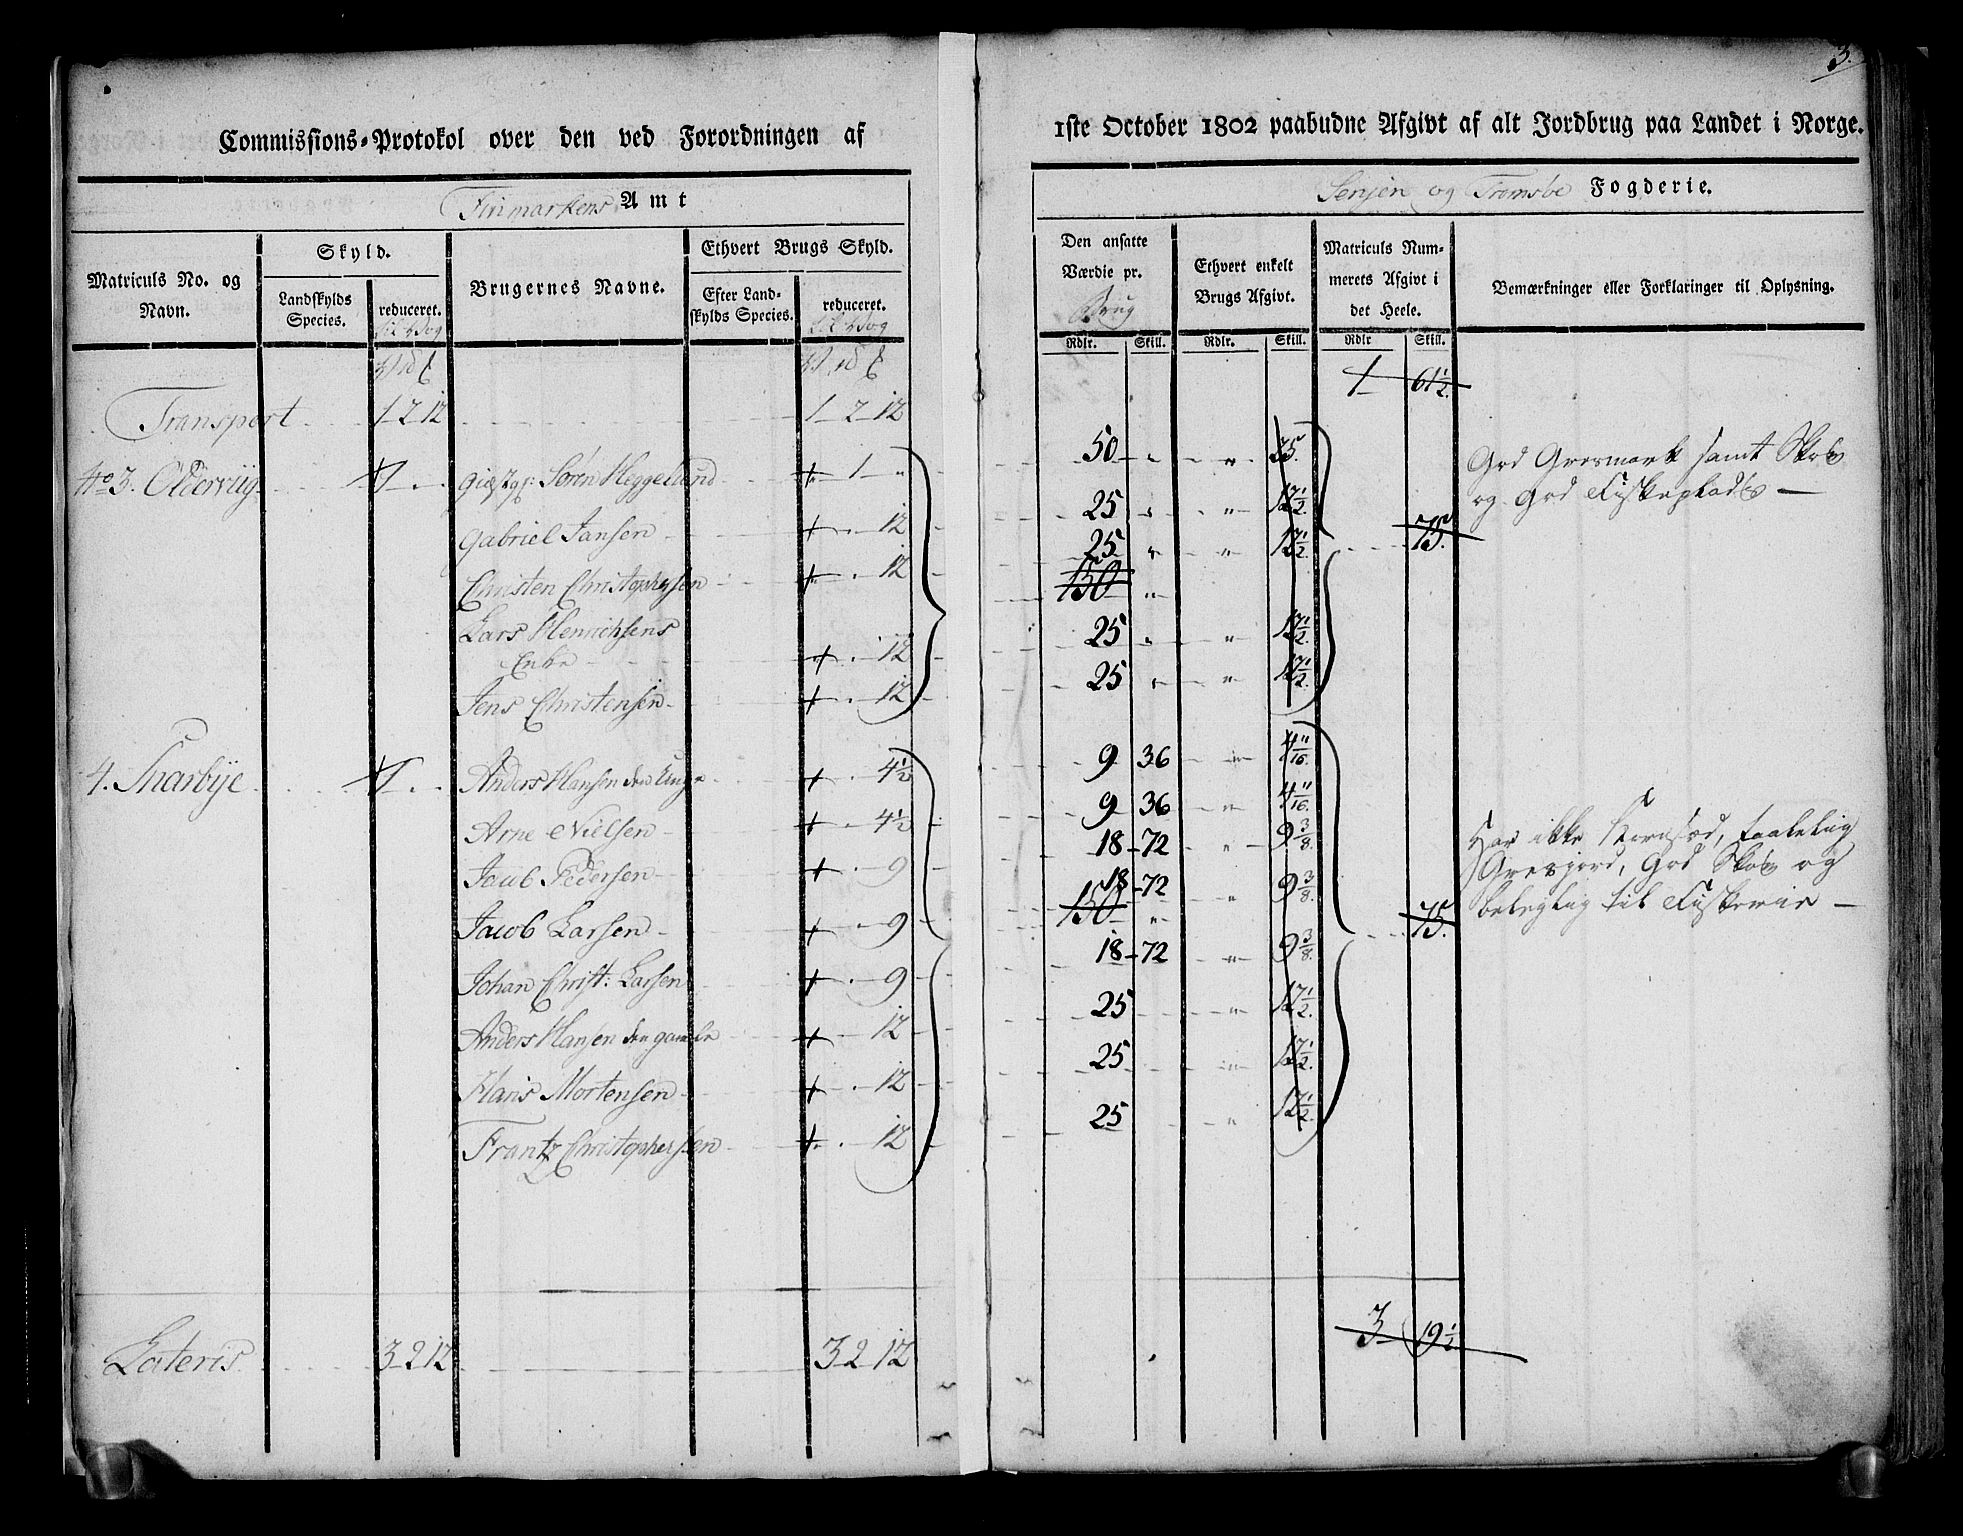 3.
Commissions-Protokol over den ved Forordningen af
1ste October 1802 paabudne Afgivt af alt Jordbrug paa Landet i Norge.
Finmarkens Amt
Senjen og Tromsøe Fogderie.
Matriculs No. og Navn.
Skyld.
Landskylds Species.
reduceret.
til Vog
Brugernes Navne.
Ethvert Brugs Skyld.
Efter Landskylds Species.
reduceret.
til Vog
Den ansatte Værdie pr.
Brug
Ethvert enkelt Brugs Afgivt.
Matriculs Nummerets Afgivt i det Heele.
Bemærkninger eller Forklaringer til Oplysning.
Rdlr. Skill. Rdlr. Skill. Rdlr Skill.
1 61 1/2.
Transport 1 2 12 1 2 12
No 3. Olderviig 1 . . Giæstg: Søren Heggelund 1 „ 50 „ „ 25.
Gabriel Jansen 12 25 „ „ 12 1/2.
Christen Christophersen 12 25 „ „ 12 1/2.
75.
150 „
Lars Henrichsens
Enke 12 25 „ „ 12 1/2.
Jens Christensen 12 25 „ „ 12 1/2.
God Græsmark samt Skov
og god Fiskeplads —
4. Snarbÿe 1 . . Anders Hansen den Unge 4 1/2 9 36 „ 4 11/16.
Arne Nielsen 4 1/2 9 36 „ 4 11/16.
Jacob Pedersen 9 18 72 „ 9 3/8.
Jacob Larsen 9 18 72 „ 9 3/8.
150 „
75.
Johan Christ: Larsen 9 18 72 „ 9 3/8.
Anders Hansen den gamle 12 25 „ 12 1/2.
Hans Mortensen 12 25 „ 12 1/2.
Frantz Christophersen 12 25 „ 12 1/2.
Har ikke Kornsæd, taalelig
Græsjord, God Skov og
beleylig til Fiskerie —
Lateris 3 2 12 3 2 12 3 19 1/2